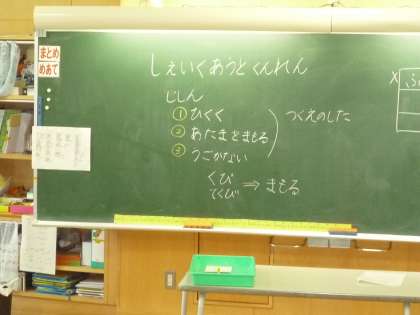 まとめ
めあて
しぇいくあうとくんれん
じしん
① ひくく
② あたまをまもる
③ うごかない
つくえのした
くび
てくび
⇒ まもる